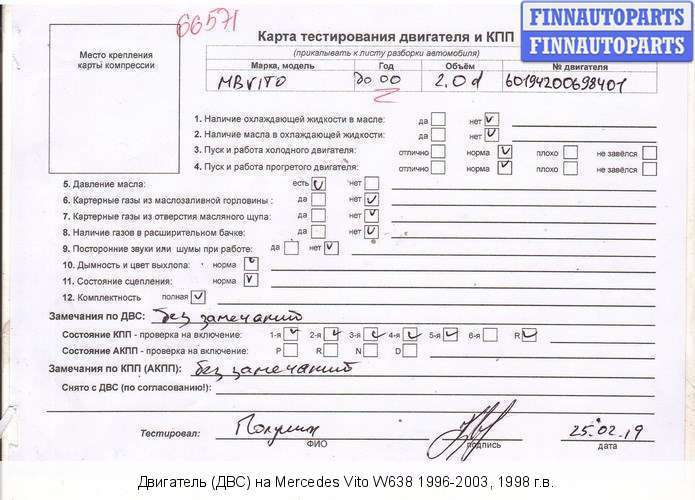 66571
FINNAUTOPARTS
FINNAUTOPARTS
Карта тестирования двигателя и КПП
(прикалывать к листу разборки автомобиля)
Место крепления
карты компрессии
Марка, модель Год Объём № двигателя
МВ VITO До 00 2.0d 60194200698401
1. Наличие охлаждающей жидкости в масле: да нет
2. Наличие масла в охлаждающей жидкости: да нет
3. Пуск и работа холодного двигателя: отлично норма плохо не завёлся
4. Пуск и работа прогретого двигателя: отлично норма плохо не завёлся
5. Давление масла: есть нет
6. Картерные газы из маслозаливной горловины: да нет
7. Картерные газы из отверстия масляного щупа: да нет
8. Наличие газов в расширительном бачке: да нет
9. Посторонние звуки или шумы при работе: да нет
10. Дымность и цвет выхлопа: норма
11. Состояние сцепления: норма
12. Комплектность полная
Замечания по ДВС: без замечаний
Состояние КПП - проверка на включение: 1-я 2-я 3-я 4-я 5-я 6-я R
Состояние АКПП - проверка на включение: P R N D
Замечания по КПП (АКПП): без замечаний
Снято с ДВС (по согласованию!):
Тестировал: 25.02.19
ФИО подпись дата
Двигатель (ДВС) на Mercedes Vito W638 1996-2003, 1998 г.в.